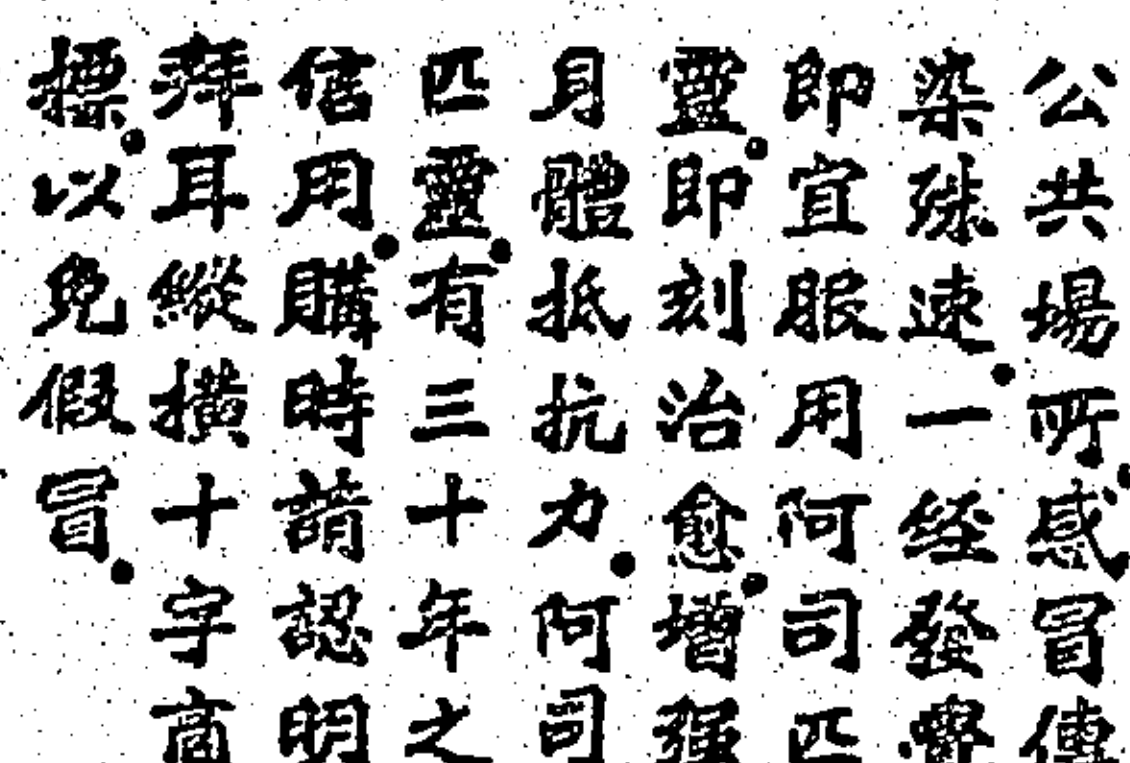 公共場所。感冒傳
染殊速。一經發覺
即宜服用阿司匹
靈。即刻治愈。增强
身體抵抗力。阿司
匹靈。有三十年之
信用。購時請認明
拜耳縱橫十字商
標。以免假冒。